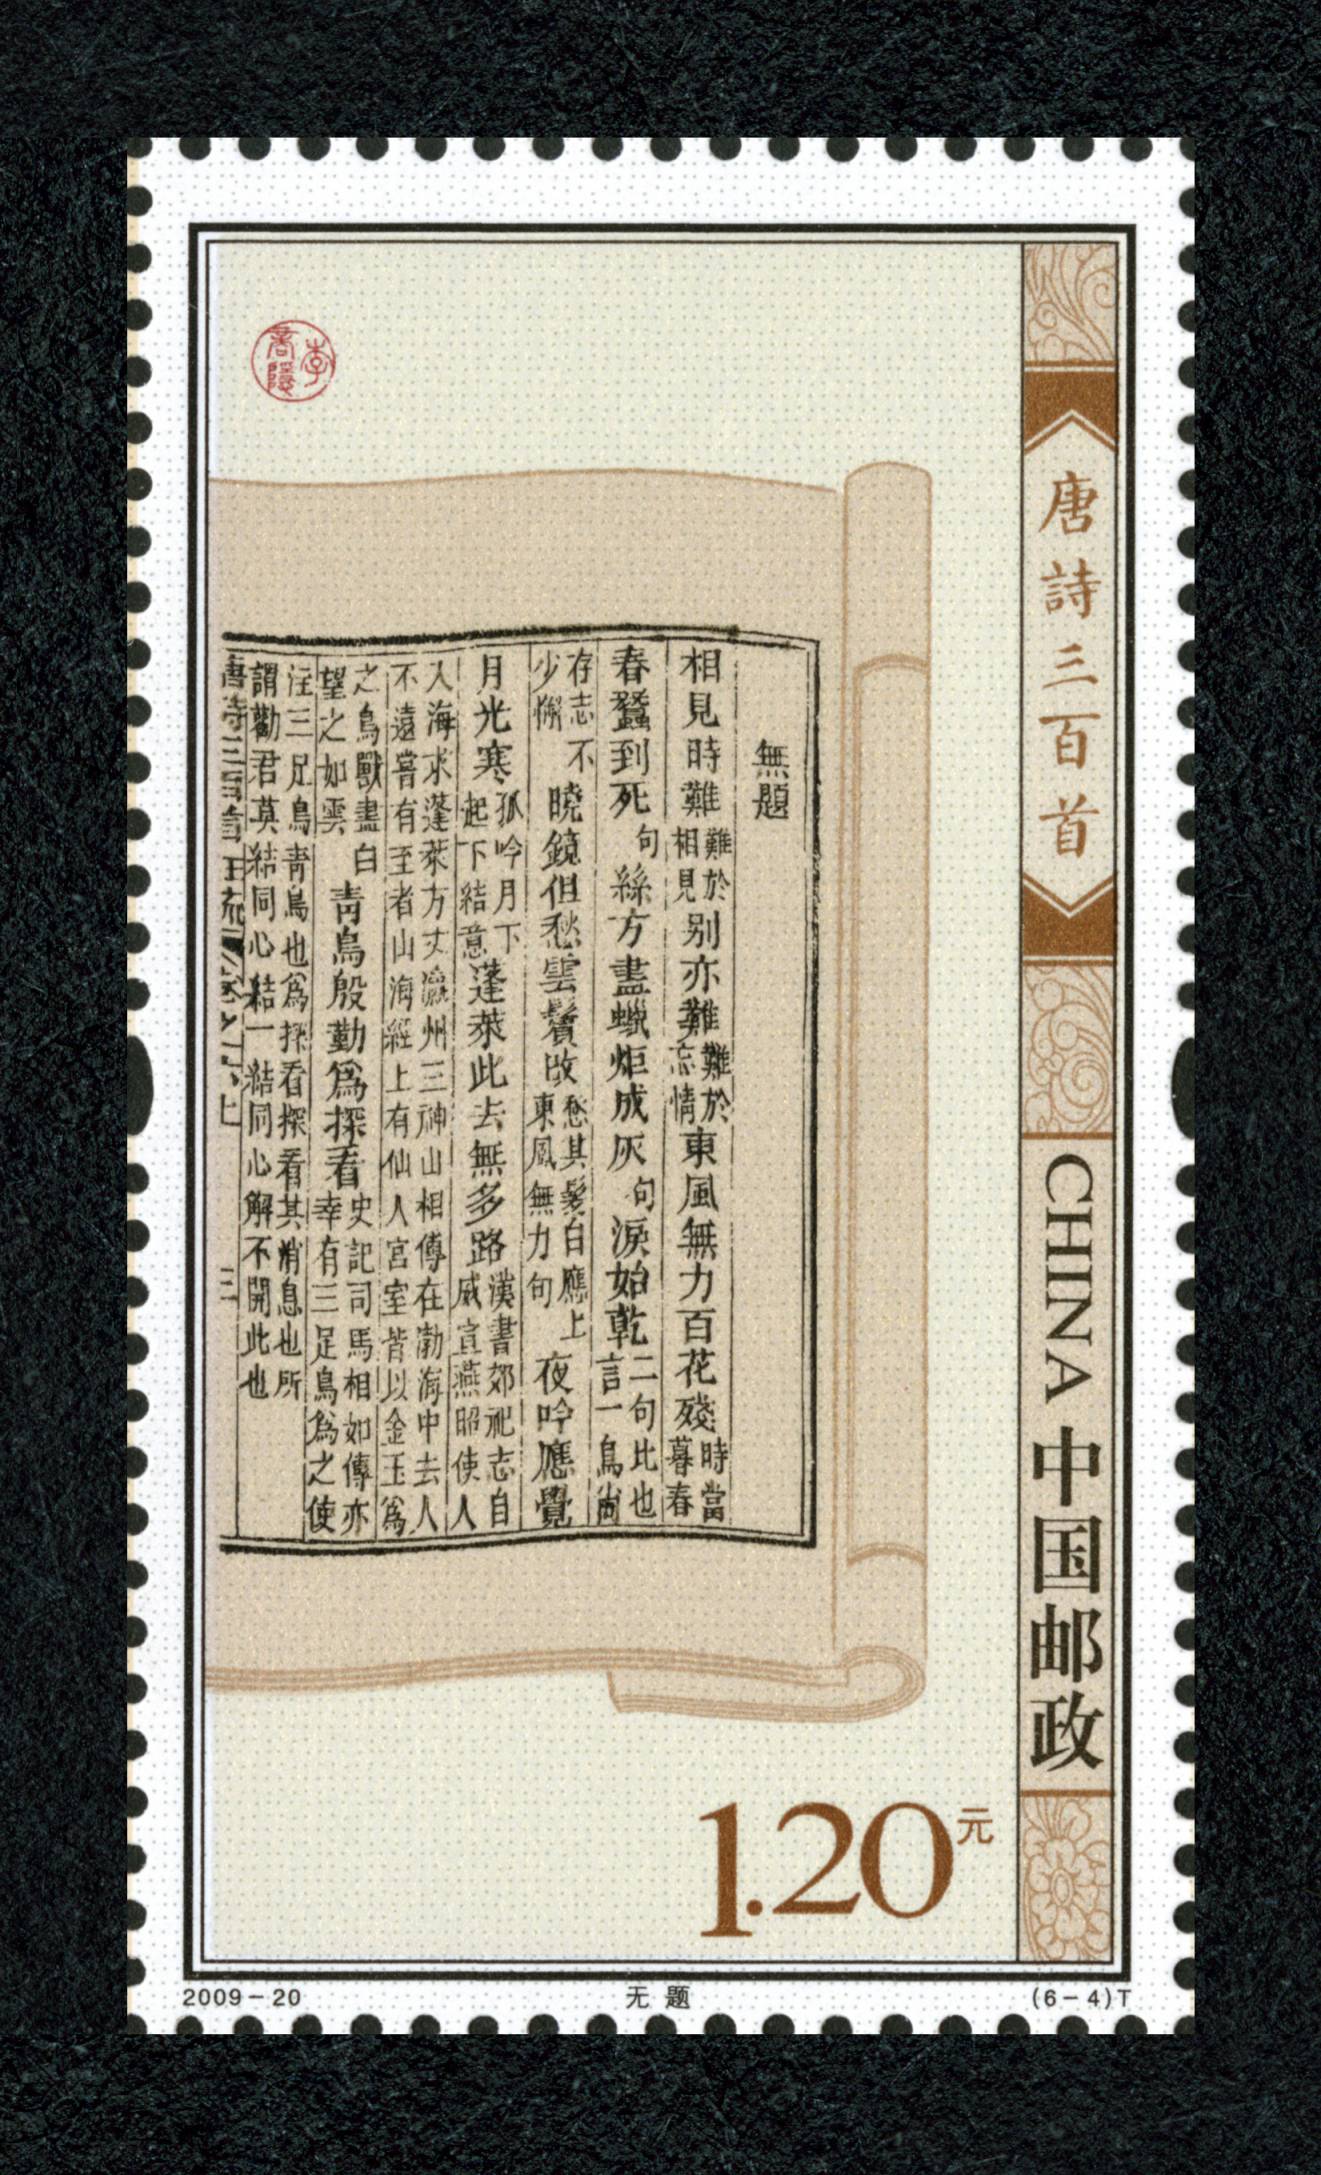 李商隱
唐詩三百首
CHINA 中国邮政
無題
相見時難難於相見别亦難難於忘情東風無力百花殘時當暮春
春蠶到死句絲方盡蠟炬成灰句淚始乾二句比也言一鳥尚
存志不少懈曉鏡但愁雲鬢改愁其髮白應上東風無力句夜吟應覺
月光寒孤吟月下起下結意蓬萊此去無多路漢書郊祀志自威宣燕昭使人
入海求蓬萊方丈瀛州三神山相傳在渤海中去人
不遠嘗有至者山海經上有仙人宮室皆以金玉爲
之鳥獸盡白望之如雲青鳥殷勤爲探看史記司馬相如傳亦幸有三足鳥爲之使
注三足鳥青鳥也爲探看探看其消息也所
謂勸君莫結同心結一結同心解不開此也
唐詩三百首
三
1.20元
2009-20
无题
(6-4)T